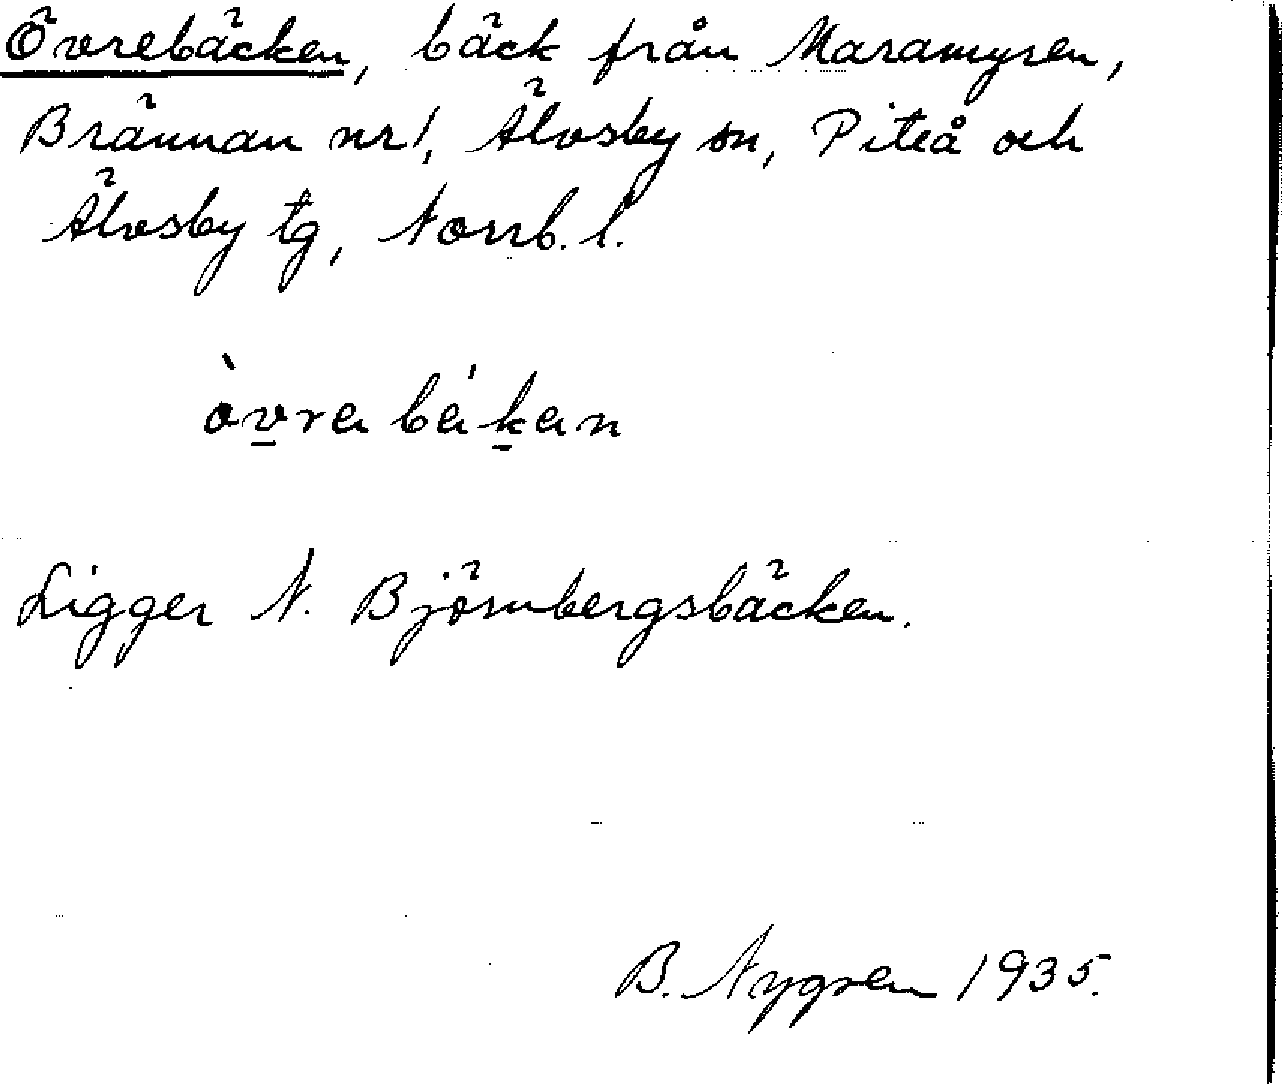 Övrebäcken, bäck från Maramyren,
Brännan nr 1, Älvsby sn, Piteå och
Älvsby tg, Norrb. l.
òvra bá'kan
Ligger N. Björnbergsbäcken.
B. Nygren 1935.